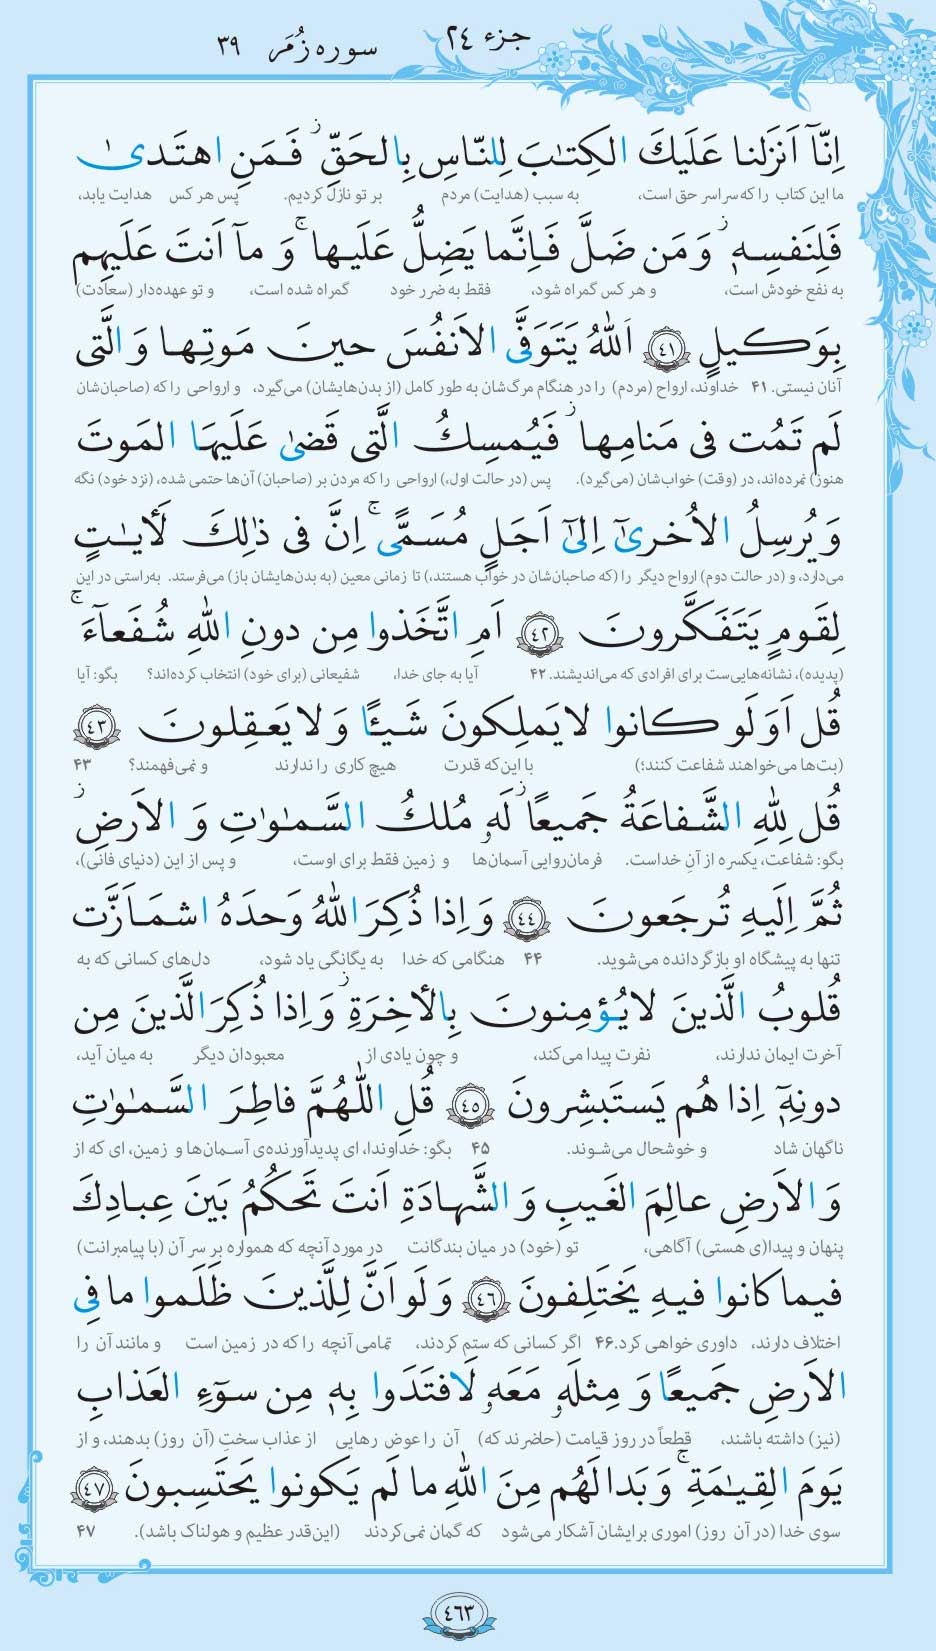 جزء ٢٤ سوره زُمَر ٣٩
اِنّآ اَنزَلنا عَلَيكَ الكِتٰبَ لِلنّاسِ بِالحَقِّ ۖ فَمَنِ اهتَدىٰ
ما این کتاب را که سراسر حق است، به سبب (هدایت) مردم بر تو نازل کردیم. پس هر کس هدایت یابد،
فَلِنَفسِهٖ ۖ وَ مَن ضَلَّ فَاِنَّما يَضِلُّ عَلَيها ۚ وَ مآ اَنتَ عَلَيهِم
به نفع خودش است، و هر کس گمراه شود، فقط به ضرر خود گمراه شده است، و تو عهده‌دار (سعادت)
بِوَكيلٍ ﴿٤١﴾ اَللّٰهُ يَتَوَفَّى الاَنفُسَ حينَ مَوتِها وَ الَّتى
آنان نیستی. ۴۱ خداوند، ارواح (مردم) را در هنگام مرگ‌شان به طور کامل (از بدن‌هایشان) می‌گیرد، و ارواحی را که (صاحبان‌شان
لَم تَمُت فى مَنامِها ۖ فَيُمسِكُ الَّتى قَضىٰ عَلَيهَا المَوتَ
هنوز) نمرده‌اند، در (وقت) خواب‌شان (می‌گیرد). پس (در حالت اول،) ارواحی را که مردن بر (صاحبان) آن‌ها حتمی شده، (نزد خود) نگه
وَ يُرسِلُ الاُخرىٰٓ اِلىٰٓ اَجَلٍ مُسَمًّى ۚ اِنَّ فى ذٰلِكَ لَأٓيٰتٍ
می‌دارد، و (در حالت دوم) ارواح دیگر را (که صاحبان‌شان در خواب هستند،) تا زمانی معین (به بدن‌هایشان باز) می‌فرستد. به‌راستی در این
لِقَومٍ يَتَفَكَّرونَ ﴿٤٢﴾ اَمِ اتَّخَذوا مِن دونِ اللّٰهِ شُفَعآءَ ۚ
(پدیده)، نشانه‌هایی‌ست برای افرادی که می‌اندیشند. ۴۲ آیا به جای خدا، شفیعانی (برای خود) انتخاب کرده‌اند؟ بگو: آیا
قُل اَوَلَو كانوا لا يَملِكونَ شَيـًٔا وَ لا يَعقِلونَ ﴿٤٣﴾
(بت‌ها می‌خواهند شفاعت کنند؛) با این‌که قدرت هیچ کاری را ندارند و نمی‌فهمند؟ ۴۳
قُل لِلّٰهِ الشَّفاعَةُ جَميعًا ۖ لَهٗ مُلكُ السَّمٰوٰتِ وَ الاَرضِ ۖ
بگو: شفاعت، یکسره از آنِ خداست. فرمان‌روایی آسمان‌ها و زمین فقط برای اوست، و پس از این (دنیای فانی)،
ثُمَّ اِلَيهِ تُرجَعونَ ﴿٤٤﴾ وَ اِذا ذُكِرَ اللّٰهُ وَحدَهُ اشمَاَزَّت
تنها به پیشگاه او بازگردانده می‌شوید. ۴۴ هنگامی که خدا به یگانگی یاد شود، دل‌های کسانی که به
قُلوبُ الَّذينَ لا يُؤمِنونَ بِالأٓخِرَةِ ۖ وَ اِذا ذُكِرَ الَّذينَ مِن
آخرت ایمان ندارند، نفرت پیدا می‌کند، و چون یادی از معبودان دیگر به میان آید،
دونِهٖٓ اِذا هُم يَستَبشِرونَ ﴿٤٥﴾ قُلِ اللّٰهُمَّ فاطِرَ السَّمٰوٰتِ
ناگهان شاد و خوشحال می‌شوند. ۴۵ بگو: خداوندا، ای پدیدآورنده‌ی آسمان‌ها و زمین، ای که از
وَ الاَرضِ عالِمَ الغَيبِ وَ الشَّهادَةِ اَنتَ تَحكُمُ بَينَ عِبادِكَ
پنهان و پیدا(ی هستی) آگاهی، تو (خود) در میان بندگانت در مورد آنچه که همواره بر سر آن (با پیامبرانت)
فيما كانوا فيهِ يَختَلِفونَ ﴿٤٦﴾ وَ لَو اَنَّ لِلَّذينَ ظَلَموا ما فِى
اختلاف دارند، داوری خواهی کرد. ۴۶ اگر کسانی که ستم کردند، تمامی آنچه را که در زمین است و مانند آن را
الاَرضِ جَميعًا وَ مِثلَهٗ مَعَهٗ لَافتَدَوا بِهٖ مِن سوٓءِ العَذابِ
(نیز) داشته باشند، قطعاً در روز قیامت (حاضرند که) آن را عوضِ رهایی از عذاب سختِ (آن روز) بدهند، و از
يَومَ القِيٰمَةِ ۚ وَ بَدا لَهُم مِنَ اللّٰهِ ما لَم يَكونوا يَحتَسِبونَ ﴿٤٧﴾
سوی خدا (در آن روز) اموری برایشان آشکار می‌شود که گمان نمی‌کردند (این‌قدر عظیم و هولناک باشد). ۴۷
٤٦٣